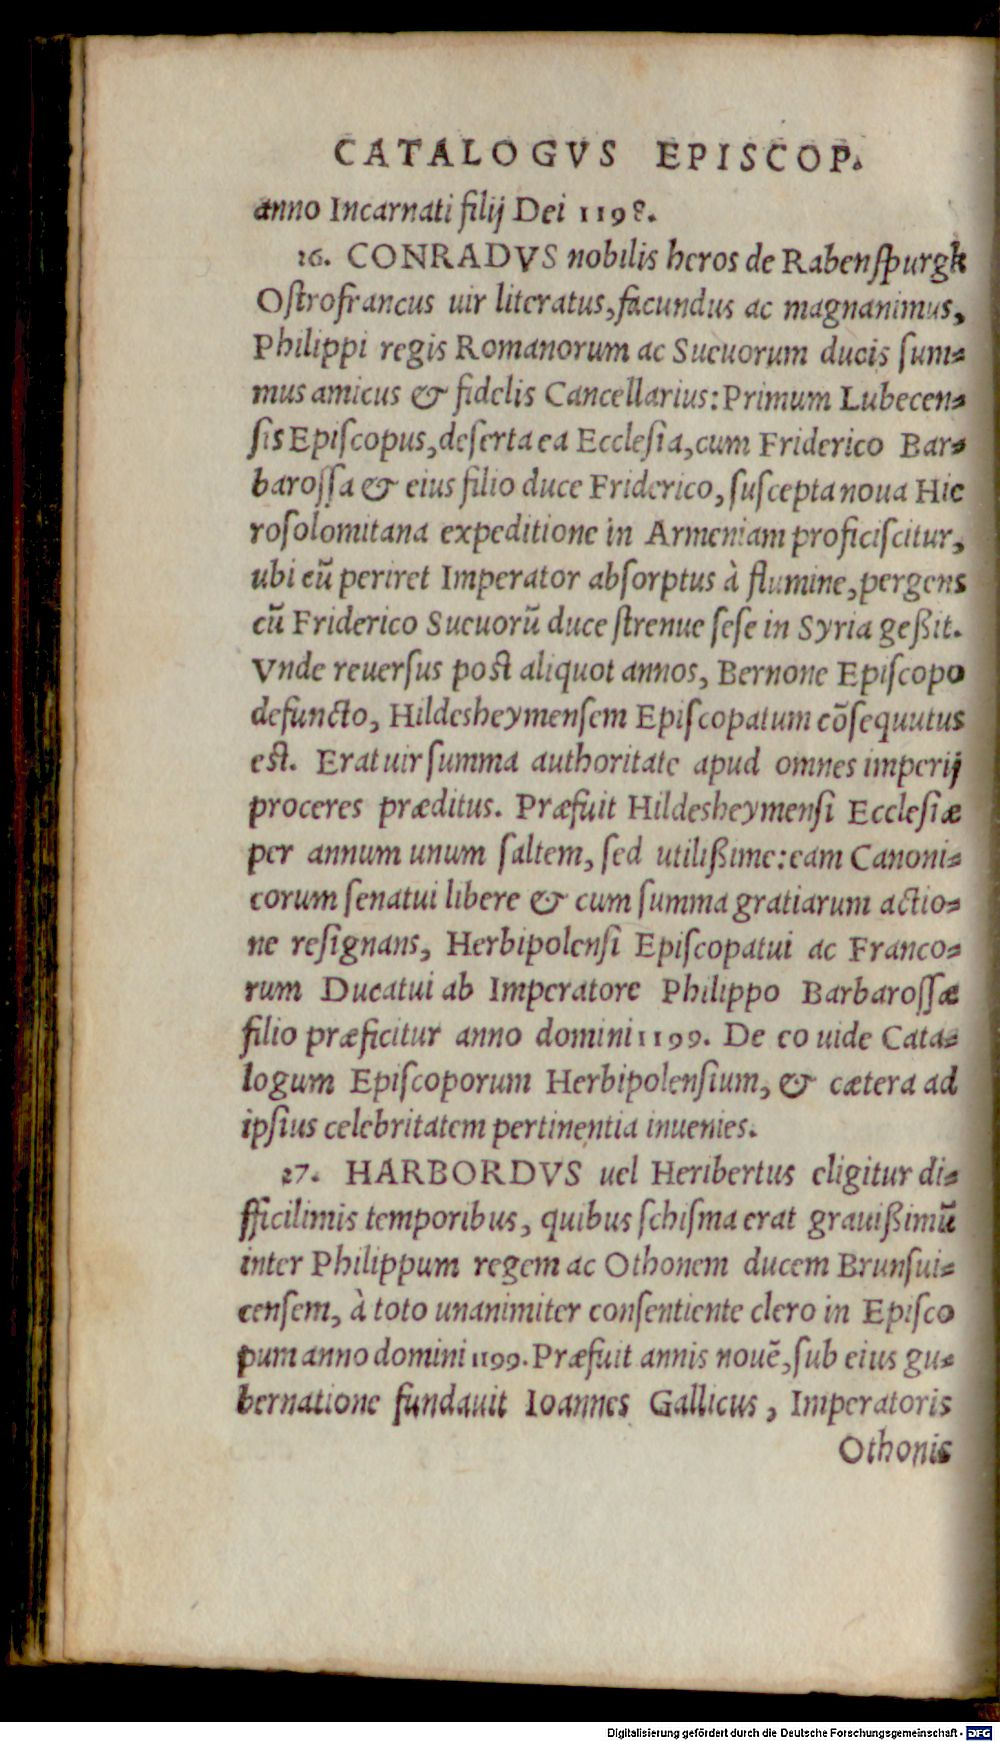 CATALOGVS EPISCOP.
anno Incarnati filij Dei 1198.
26. CONRADVS nobilis heros de Rabenſpurgk
Oſtrofrancus uir literatus, facundus ac magnanimus,
Philippi regis Romanorum ac Sueuorum ducis ſum-
mus amicus & fidelis Cancellarius: Primum Lubecen-
ſis Epiſcopus, deſerta ea Eccleſia, cum Friderico Bar-
baroſſa & eius filio duce Friderico, ſuſcepta noua Hie
roſolomitana expeditione in Armeniam proficiſcitur,
ubi cũ periret Imperator abſorptus à flumine, pergens
cũ Friderico Sueuorũ duce ſtrenue ſeſe in Syria geßit.
Vnde reuerſus poſt aliquot annos, Bernone Epiſcopo
defuncto, Hildesheymenſem Epiſcopatum cõſequutus
eſt. Erat uir ſumma authoritate apud omnes imperij
proceres præditus. Præfuit Hildesheymenſi Eccleſiæ
per annum unum ſaltem, ſed utilißime: eam Canoni-
corum ſenatui libere & cum ſumma gratiarum actio-
ne reſignans, Herbipolenſi Epiſcopatui ac Franco-
rum Ducatui ab Imperatore Philippo Barbaroſſæ
filio præficitur anno domini 1199. De eo uide Cata-
logum Epiſcoporum Herbipolenſium, & cætera ad
ipſius celebritatem pertinentia inuenies.
27. HARBORDVS uel Heribertus eligitur di-
fficilimis temporibus, quibus ſchiſma erat grauißimũ
inter Philippum regem ac Othonem ducem Brunſui-
cenſem, à toto unanimiter conſentiente clero in Epiſco
pum anno domini 1199. Præfuit annis nouẽ, ſub eius gu-
bernatione fundauit Ioannes Gallicus, Imperatoris
Othonis
Digitalisierung gefördert durch die Deutsche Forschungsgemeinschaft - DFG